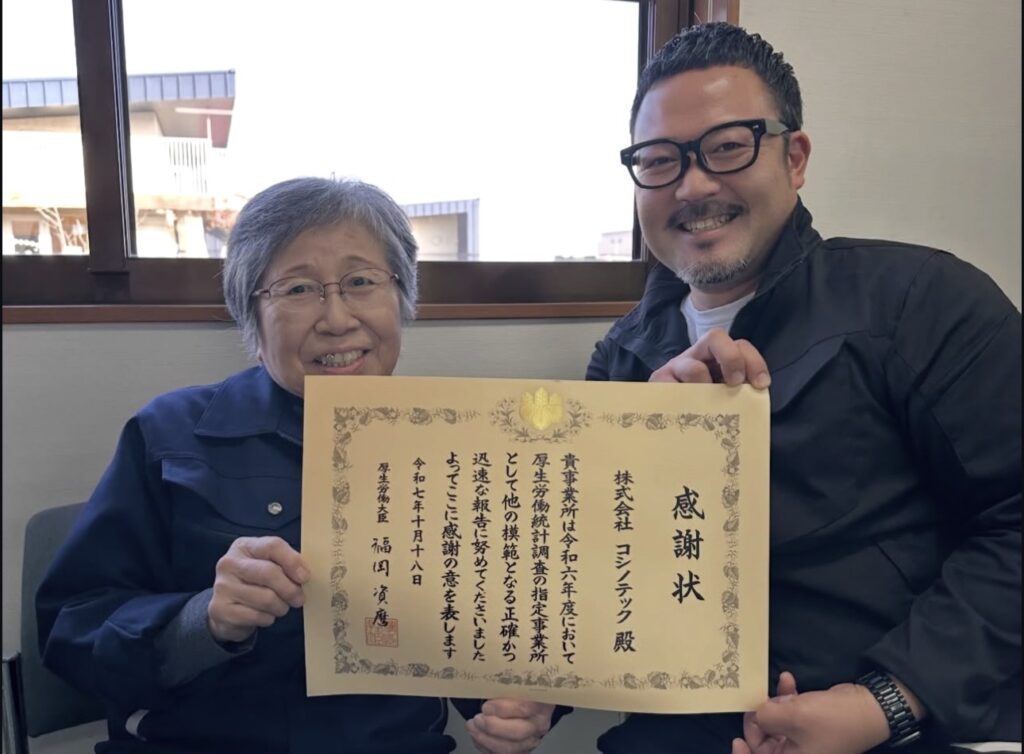 感謝状
株式会社 コシノテック 殿
貴事業所は令和六年度において
厚生労働統計調査の指定事業所
として他の模範となる正確かつ
迅速な報告に努めてくださいました
よってここに感謝の意を表します
令和七年十月十八日
厚生労働大臣 福岡資麿